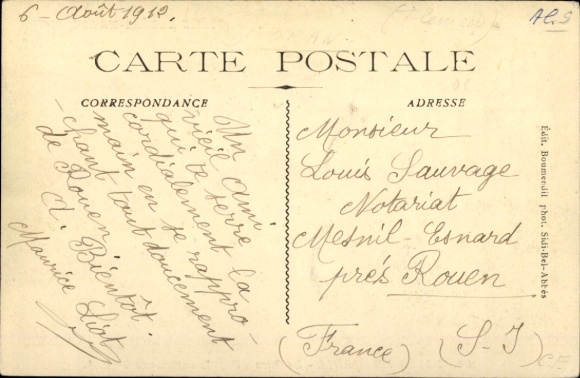 6 - Août 1912.
AL. S
CARTE POSTALE
CORRESPONDANCE
ADRESSE
Un ami
vieil
qui te serre
cordialement la
main en se rappro-
-chant tout doucement
de Rouen
A. Bientôt.
Maurice Liot
Monsieur
Louis Sauvage
Notariat
Mesnil-Esnard
prés Rouen
(France) (S-I)
Édit. Boumendil phot. Sidi-Bel-Abbès
C.F.